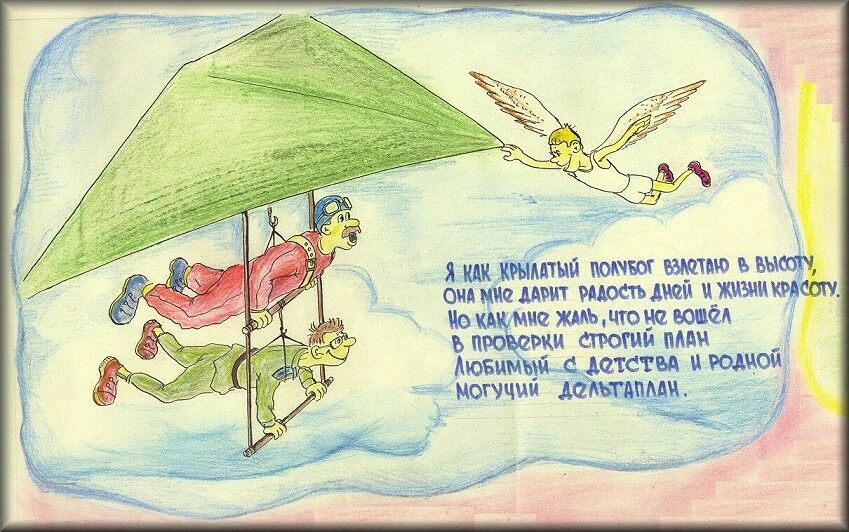 Я как крылатый полубог взлетаю в высоту,
Она мне дарит радость дней и жизни красоту.
Но как мне жаль, что не вошёл
в проверки строгий план
Любимый с детства и родной
могучий дельтаплан.